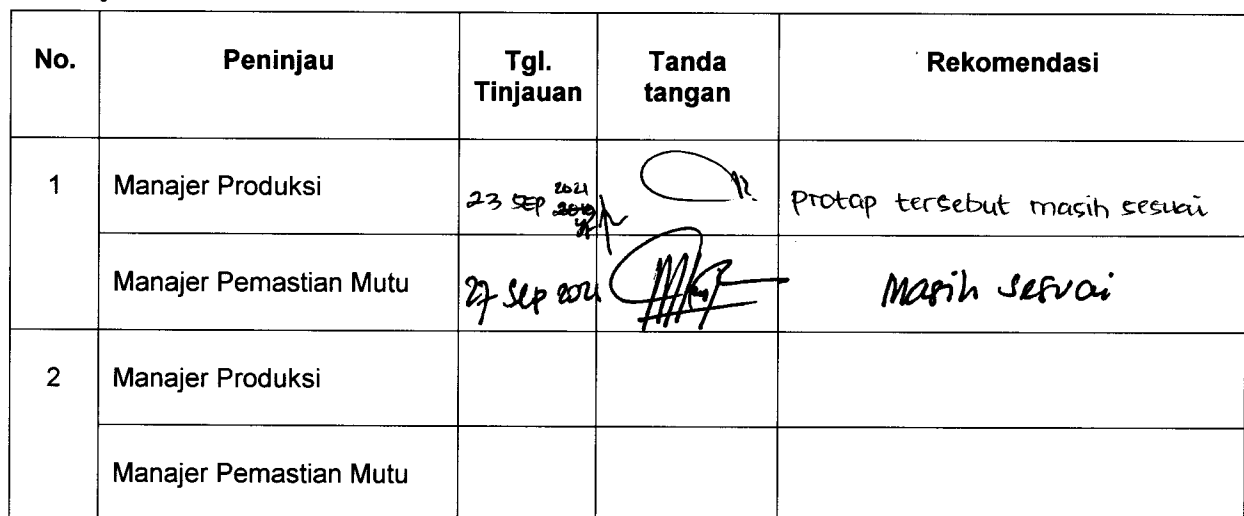 No.
Peninjau
Tgl.
Tinjauan
Tanda
tangan
Rekomendasi
1
Manajer Produksi
23 SEP 2021
2019
protap tersebut masih sesuai
Manajer Pemastian Mutu
27 Sep 2021
Masih sesuai
2
Manajer Produksi
Manajer Pemastian Mutu